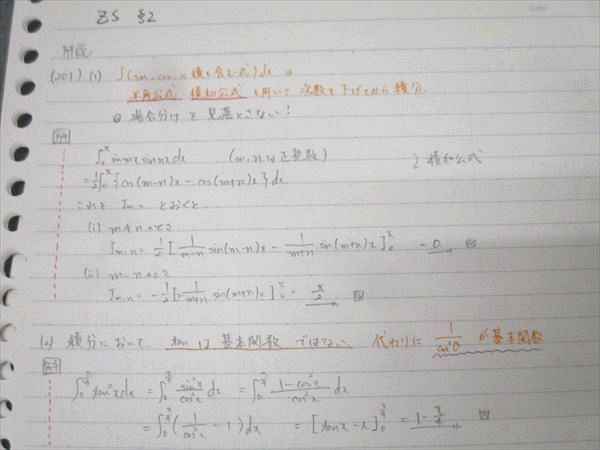 ZS §2
解説
(201) (1) ∫(sin, cos の積を含む式)dx は
半角公式 積和公式 を用いて 次数を下げてから 積分.
場合分け を 見落とさない!
∫₀^π sin mx sin nx dx (m, n は正整数)
= 1/2 ∫₀^π {cos(m-n)x - cos(m+n)x} dx 積和公式
これを I m,n とおくと
(i) m≠n のとき
I m,n = 1/2 [ 1/(m-n) sin(m-n)x - 1/(m+n) sin(m+n)x ]₀^π = 0
(ii) m=n のとき
I m,n = -1/2 [ 1/(m+n) sin(m+n)x ]₀^π = π/2
(2) 積分において, tan は 基本関数 ではない. 代わりに 1/cos²θ が基本関数
∫₀^(π/4) tan²x dx = ∫₀^(π/4) sin²x/cos²x dx = ∫₀^(π/4) (1-cos²x)/cos²x dx
= ∫₀^(π/4) (1/cos²x - 1) dx = [tan x - x]₀^(π/4) = 1 - π/4